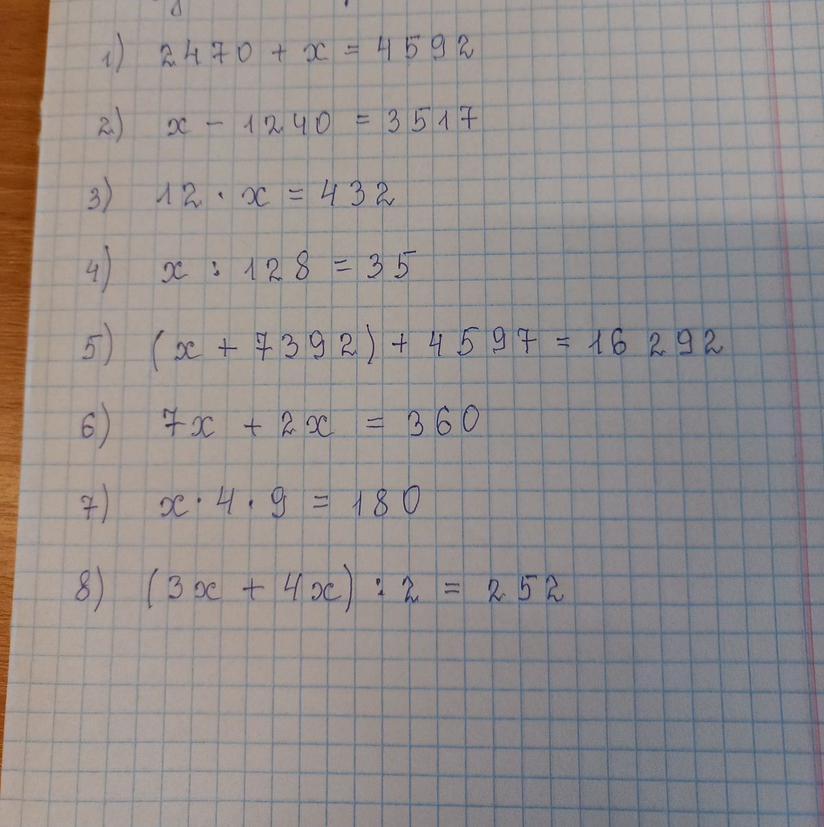 1) 2470 + x = 4592
2) x - 1240 = 3517
3) 12 · x = 432
4) x : 128 = 35
5) (x + 7392) + 4597 = 16 292
6) 7x + 2x = 360
7) x · 4 · 9 = 180
8) (3x + 4x) : 2 = 252